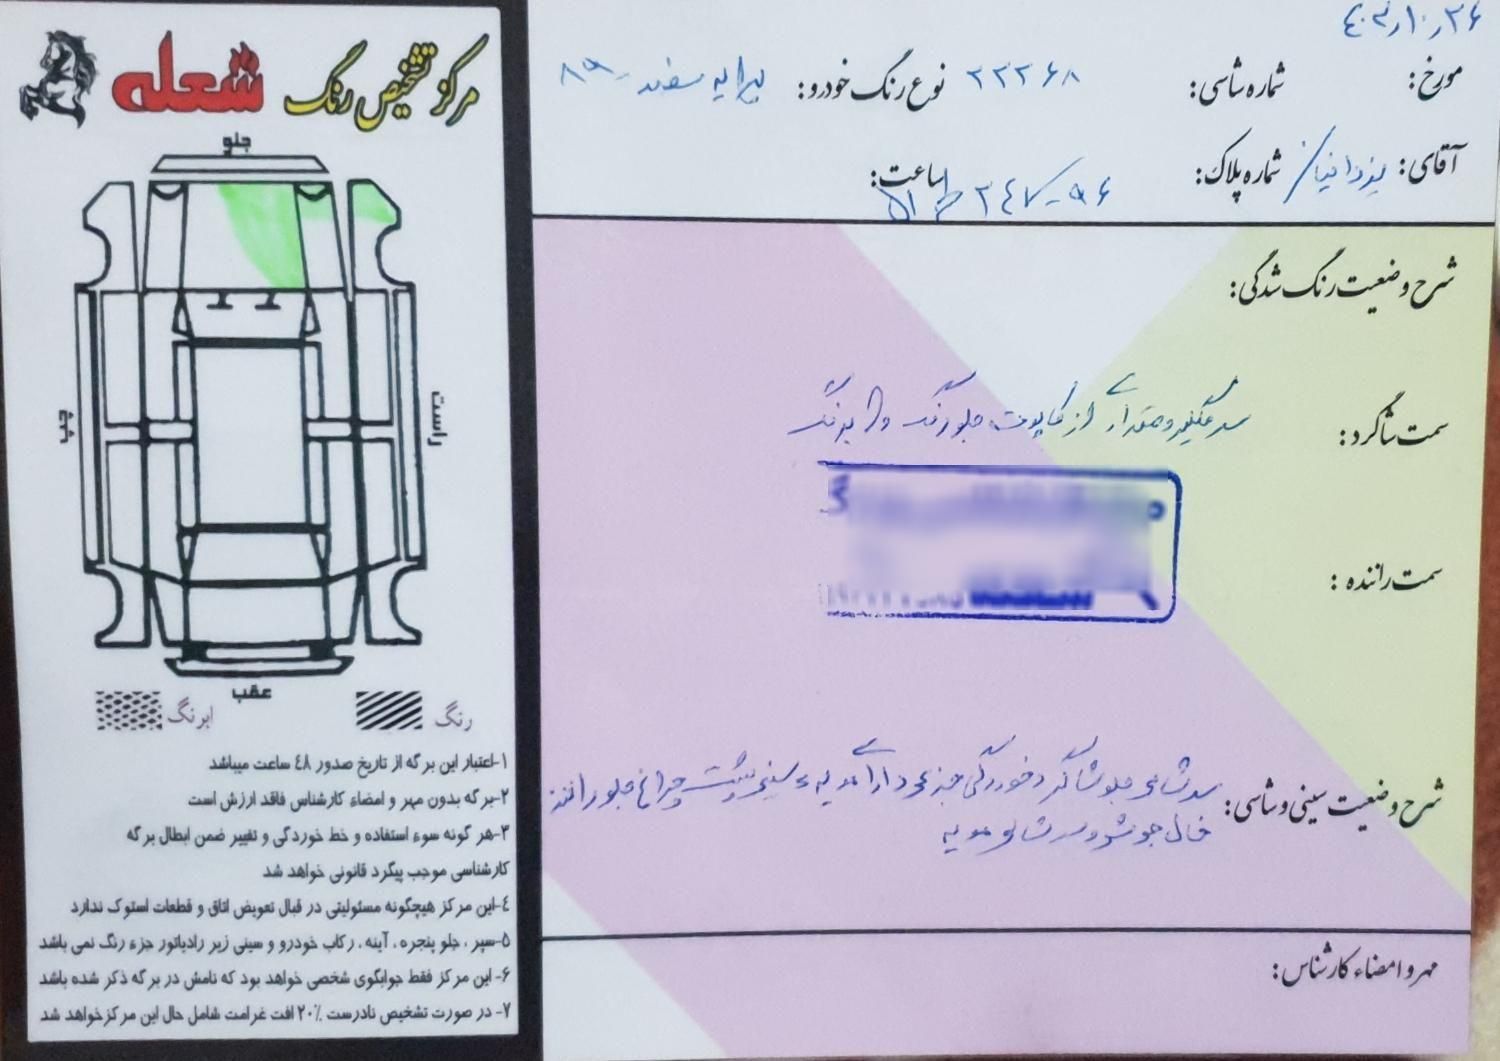 مرکز تشخیص رنگ شعله
جلو
راست
چپ
عقب
رنگ
ابرنگ
۱-اعتبار این برگه از تاریخ صدور ٤٨ ساعت میباشد
۲-برگه بدون مهر و امضاء کارشناس فاقد ارزش است
۳-هر گونه سوء استفاده و خط خوردگی و تغییر ضمن ابطال برگه
کارشناسی موجب پیگرد قانونی خواهد شد
٤-این مرکز هیچگونه مسئولیتی در قبال تعویض اتاق و قطعات استوک ندارد
۵-سپر ، جلو پنجره ، آینه ، رکاب خودرو و سینی زیر رادیاتور جزء رنگ نمی باشد
۶- این مرکز فقط جوابگوی شخصی خواهد بود که نامش در برگه ذکر شده باشد
۷- در صورت تشخیص نادرست ۲۰٪ افت غرامت شامل حال این مرکز خواهد شد
مورخ: ۴۰۳٫۱۰٫۲۶ شماره شاسی: ۲۲۲۶۸ نوع رنگ خودرو: پراید سفید ۸۹
آقای: یزدانیان شماره پلاک: ۹۶ - ۲۴۷ ط ۵۱ ساعت:
شرح وضعیت رنگ شدگی:
سمت شاگرد: گلگیر و مقداری از کاپوت جلو رنگ و ابرنگ
سمت راننده :
شرح وضعیت سینی و شاسی: سرشاسی جلو شاگرد خوردگی جزئی دارد سینی پشت چراغ جلو راننده
خال جوش و سرشاسی
مهر و امضاء کارشناس: